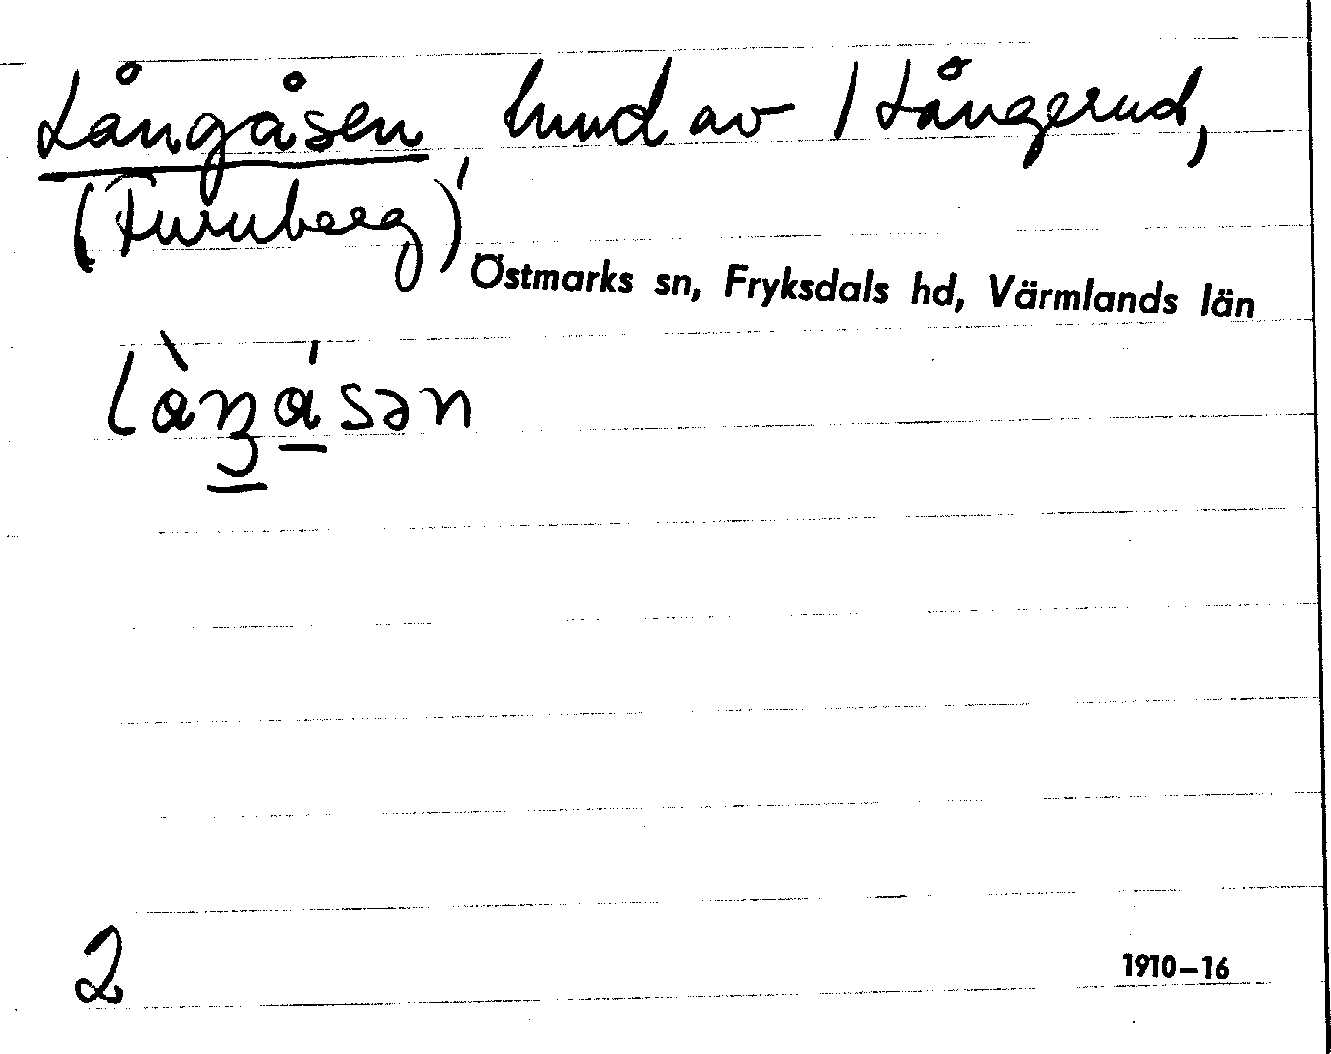 Långåsen, hmd av 1 Långerud,
(Furuberg)
Östmarks sn, Fryksdals hd, Värmlands län
2
1910–16